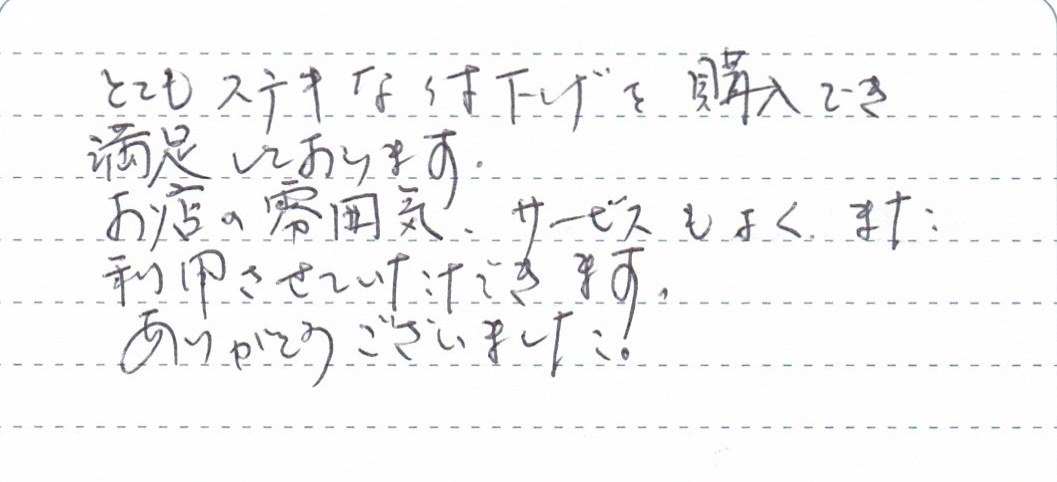 とてもステキな付下げを購入でき
満足しております。
お店の雰囲気、サービスもよく、また
利用させていただきます。
ありがとうございました。